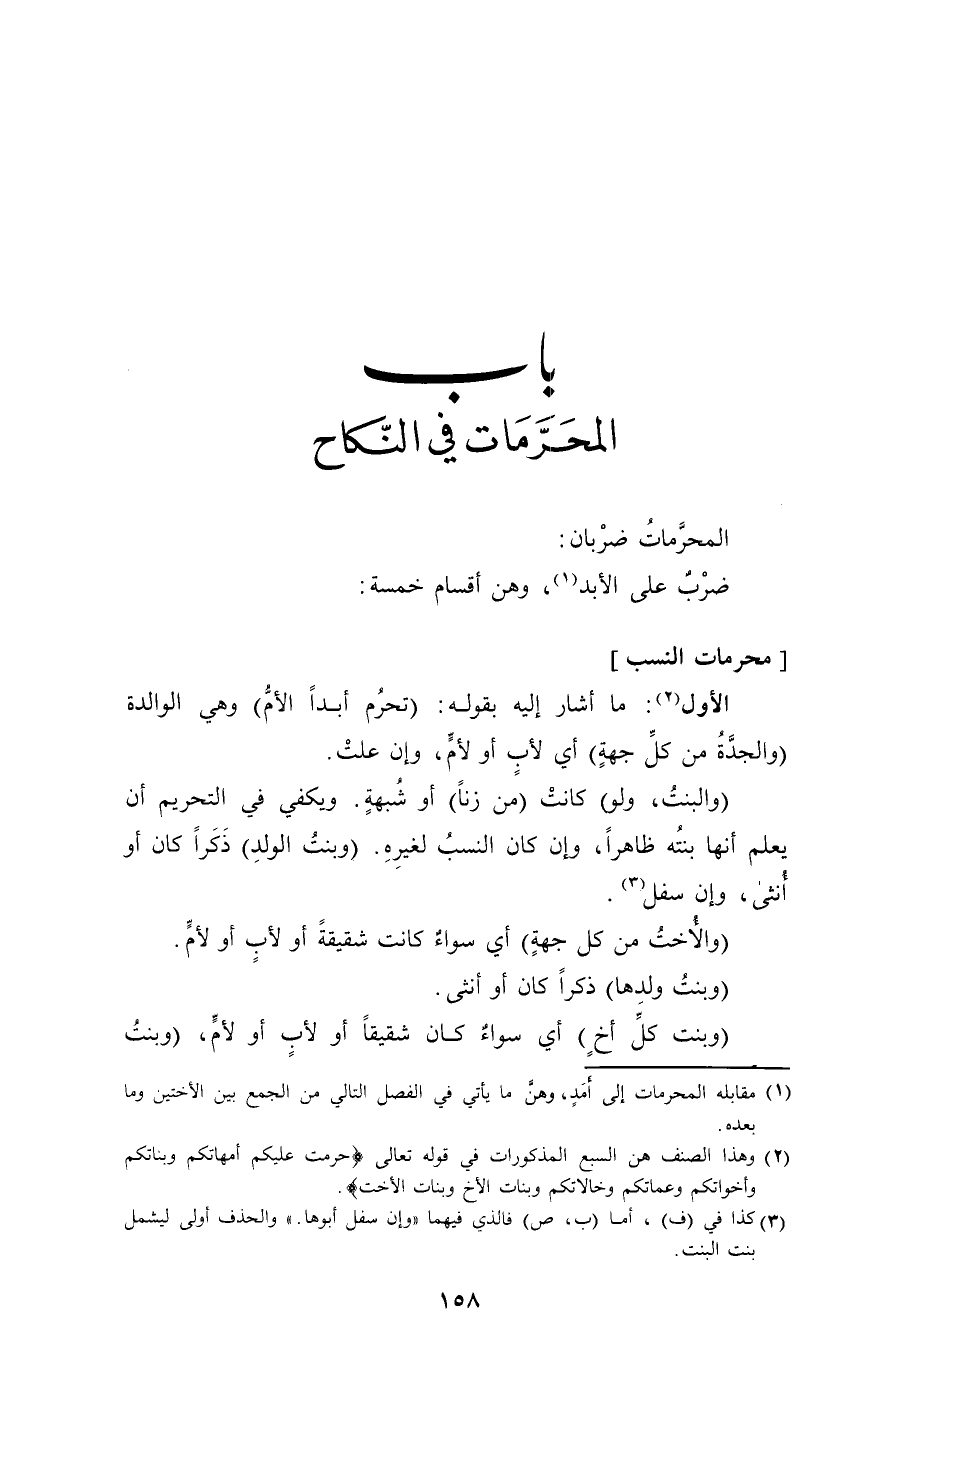 باب
المحَرَّمَات في النّكاح
المحرَّماتُ ضرْبان:
ضرْبٌ على الأبد(١)، وهن أقسام خمسة:
[ محرمات النسب ]
الأول(٢): ما أشار إليه بقوله: (تحرُم أبداً الأمُّ) وهي الوالدة
(والجدَّةُ من كلِّ جهةٍ) أي لأبٍ أو لأمٍّ، وإن علتْ.
(والبنتُ، ولو) كانتْ (من زناً) أو شُبهةٍ. ويكفي في التحريم أن
يعلم أنها بنتُه ظاهراً، وإن كان النسبُ لغيرِهِ. (وبنتُ الولدِ) ذَكَراً كان أو
أُنثىٰ، وإن سفل(٣).
(والأُختُ من كل جهةٍ) أي سواءٌ كانت شقيقةً أو لأبٍ أو لأمٍّ.
(وبنتُ ولدِها) ذكراً كان أو أنثى.
(وبنت كلِّ أخٍ) أي سواءٌ كان شقيقاً أو لأبٍ أو لأمٍّ، (وبنتُ
(١) مقابله المحرمات إلى أَمَدٍ، وهنَّ ما يأتي في الفصل التالي من الجمع بين الأختين وما
بعده.
(٢) وهذا الصنف هن السبع المذكورات في قوله تعالى ﴿حرمت عليكم أمهاتكم وبناتكم
وأخواتكم وعماتكم وخالاتكم وبنات الأخ وبنات الأخت﴾.
(٣) كذا في (ف) ، أما (ب، ص) فالذي فيهما «وإن سفل أبوها.» والحذف أولى ليشمل
بنت البنت.
١٥٨